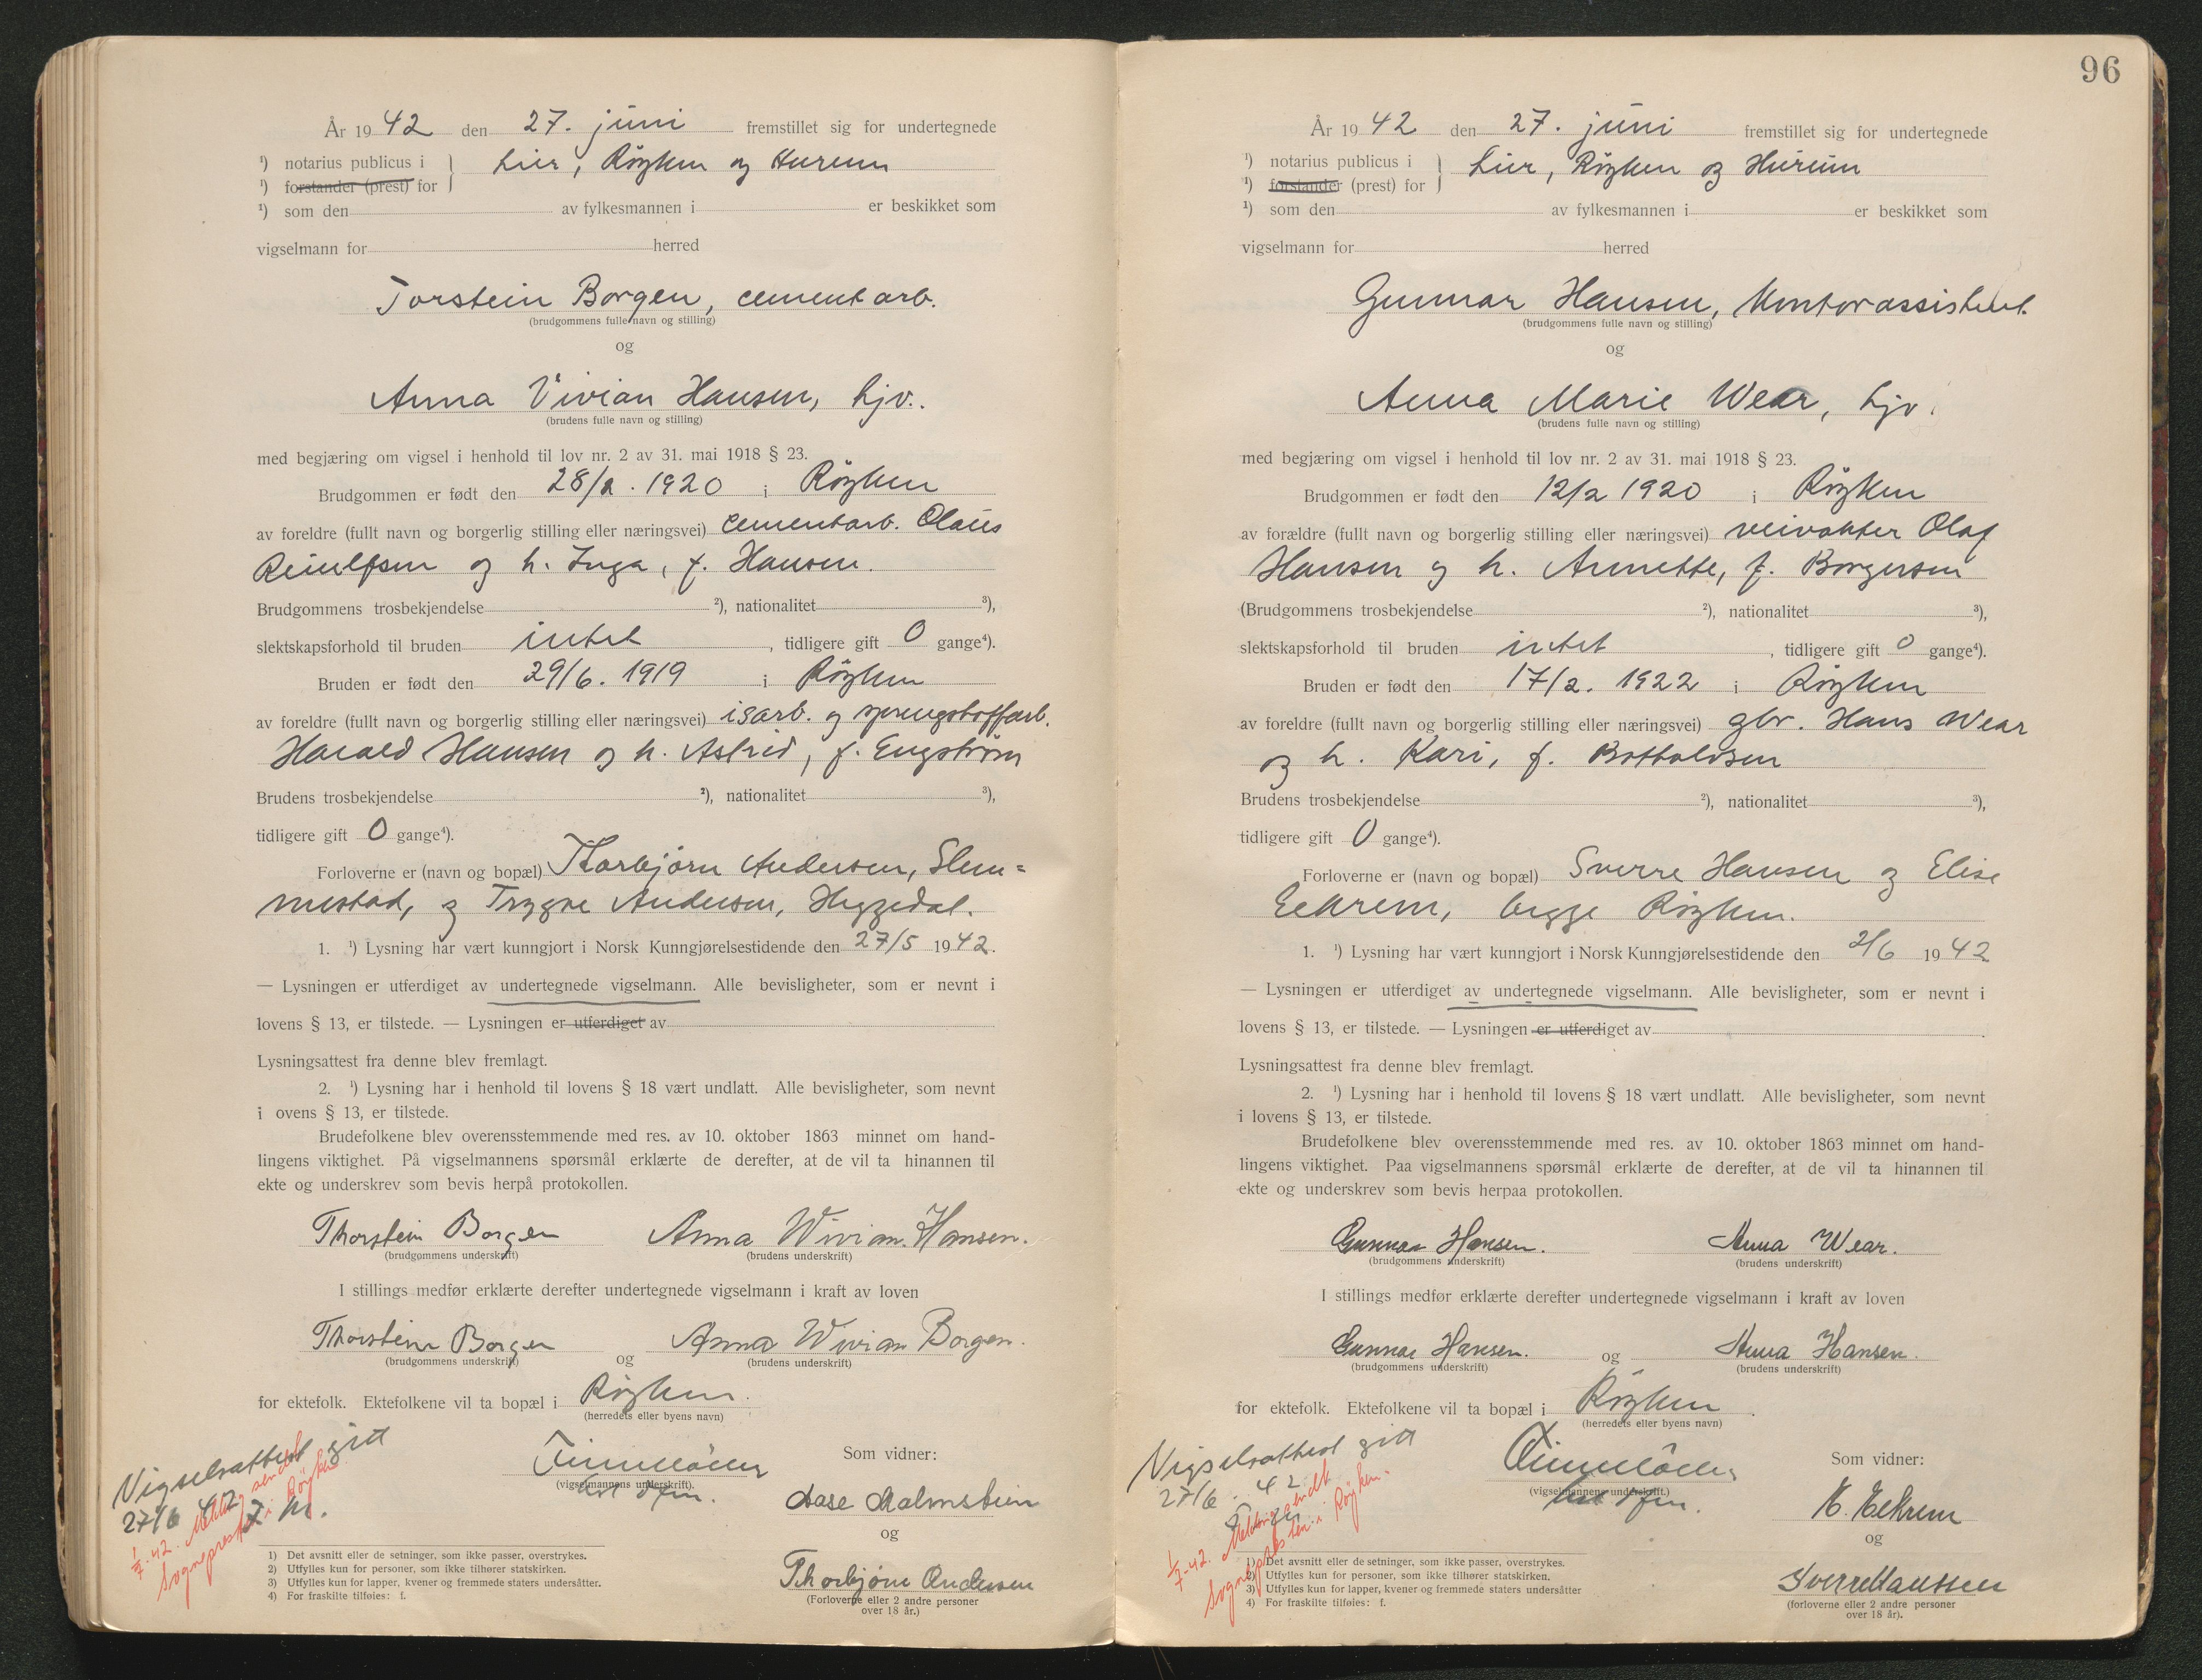 År 1942 den 27. juni fremstillet sig for undertegnede
¹) notarius publicus i } Lier, Röyken og Hurum
¹) forstander (prest) for
¹) som den av fylkesmannen i er beskikket som
vigselmann for herred
Torstein Borgen, cementarb.
(brudgommens fulle navn og stilling)
og
Anna Vivian Hansen, hjv.
(brudens fulle navn og stilling)
med begjæring om vigsel i henhold til lov nr. 2 av 31. mai 1918 § 23.
Brudgommen er født den 28/2. 1920 i Röyken
av foreldre (fullt navn og borgerlig stilling eller næringsvei) cementarb. Olaus
Reiulfsen og h. Inga, f. Hansen.
Brudgommens trosbekjendelse ²), nationalitet ³),
slektskapsforhold til bruden intet, tidligere gift 0 gange⁴).
Bruden er født den 29/6. 1919 i Röyken
av foreldre (fullt navn og borgerlig stilling eller næringsvei) isarb. og sprengstoffarb.
Harald Hansen og h. Astrid, f. Engstrøm
Brudens trosbekjendelse ²), nationalitet ³),
tidligere gift 0 gange⁴).
Forloverne er (navn og bopæl) Thorbjørn Andersen, Slem=
mestad, og Trygve Andersen, Heggedal.
1. ¹) Lysning har vært kunngjort i Norsk Kunngjørelsestidende den 27/5 1942.
— Lysningen er utferdiget av undertegnede vigselmann. Alle bevisligheter, som er nevnt i
lovens § 13, er tilstede. — Lysningen er utferdiget av
Lysningsattest fra denne blev fremlagt.
2. ¹) Lysning har i henhold til lovens § 18 vært undlatt. Alle bevisligheter, som nevnt
i ovens § 13, er tilstede.
Brudefolkene blev overensstemmende med res. av 10. oktober 1863 minnet om hand-
lingens viktighet. På vigselmannens spørsmål erklærte de derefter, at de vil ta hinannen til
ekte og underskrev som bevis herpå protokollen.
Thorstein Borgen Anna Wivian Hansen.
(brudgommens underskrift) (brudens underskrift)
I stillings medfør erklærte derefter undertegnede vigselmann i kraft av loven
Thorstein Borgen og Anna Wivian Borgen.
(brudgommens underskrift) (brudens underskrift)
for ektefolk. Ektefolkene vil ta bopæl i Röyken.
(herredets eller byens navn)
Vigselsattest gitt
27/6 42
1/7-42. Melding sendt
Sogneprest i Røyken
(vigselmannens underskrift).
Som vidner:
Aase Malmstein
og
Thorbjørn Andersen
(Forloverne eller 2 andre personer
over 18 år.)
1) Det avsnitt eller de setninger, som ikke passer, overstrykes.
2) Utfylles kun for personer, som ikke tilhører statskirken.
3) Utfylles kun for lapper, kvener og fremmede staters undersåtter.
4) For fraskilte tilføies: f.
96
År 1942 den 27. juni fremstillet sig for undertegnede
¹) notarius publicus i } Lier, Röyken og Hurum
¹) forstander (prest) for
¹) som den av fylkesmannen i er beskikket som
vigselmann for herred
Gunnar Hansen, kontorassistent.
(brudgommens fulle navn og stilling)
og
Anna Marie Wear, hjv.
(brudens fulle navn og stilling)
med begjæring om vigsel i henhold til lov nr. 2 av 31. mai 1918 § 23.
Brudgommen er født den 12/2 1920 i Röyken
av forældre (fullt navn og borgerlig stilling eller næringsvei) veivokter Olaf
Hansen og h. Annette, f. Borgersen
(Brudgommens trosbekjendelse ²), nationalitet ³),
slektskapsforhold til bruden intet, tidligere gift 0 gange⁴).
Bruden er født den 17/2. 1922 i Röyken
av foreldre (fullt navn og borgerlig stilling eller næringsvei) gbr. Hans Wear
og h. Kari, f. Bottolvsen
Brudens trosbekjendelse ²), nationalitet ³),
tidligere gift 0 gange⁴).
Forloverne er (navn og bopæl) Sverre Hansen og Elise
Eekrem, begge Röyken.
1. ¹) Lysning har vært kunngjort i Norsk Kunngjørelsestidende den 2/6 1942
— Lysningen er utferdiget av undertegnede vigselmann. Alle bevisligheter, som er nevnt i
lovens § 13, er tilstede. — Lysningen er utferdiget av
Lysningsattest fra denne blev fremlagt.
2. ¹) Lysning har i henhold til lovens § 18 vært undlatt. Alle bevisligheter, som nevnt
i lovens § 13, er tilstede.
Brudefolkene blev overensstemmende med res. av 10. oktober 1863 minnet om hand-
lingens viktighet. Paa vigselmannens spørsmål erklærte de derefter, at de vil ta hinannen til
ekte og underskrev som bevis herpaa protokollen.
Gunnar Hansen. Anna Wear.
(brudgommens underskrift) (brudens underskrift)
I stillings medfør erklærte derefter undertegnede vigselmann i kraft av loven
Gunnar Hansen. og Anna Hansen.
(brudgommens underskrift) (brudens underskrift)
for ektefolk. Ektefolkene vil ta bopæl i Röyken.
(herredets eller byens navn)
Vigselsattest gitt
27/6. 42
1/7-42. Melding sendt
Sognepresten i Røyken.
(vigselmannens underskrift.)
Som vidner:
E. Eekrem
og
Sverre Hanssen
(forloverne eller 2 andre personer
over 18 år).
1) Det avsnitt eller de setninger, som ikke passer, overstrykes.
2) Utfylles kun for personer, som ikke tilhører statskirken.
3) Utfylles kun for lapper, kvener og fremmede staters undersåtter
4) For fraskilte tilføies: f.